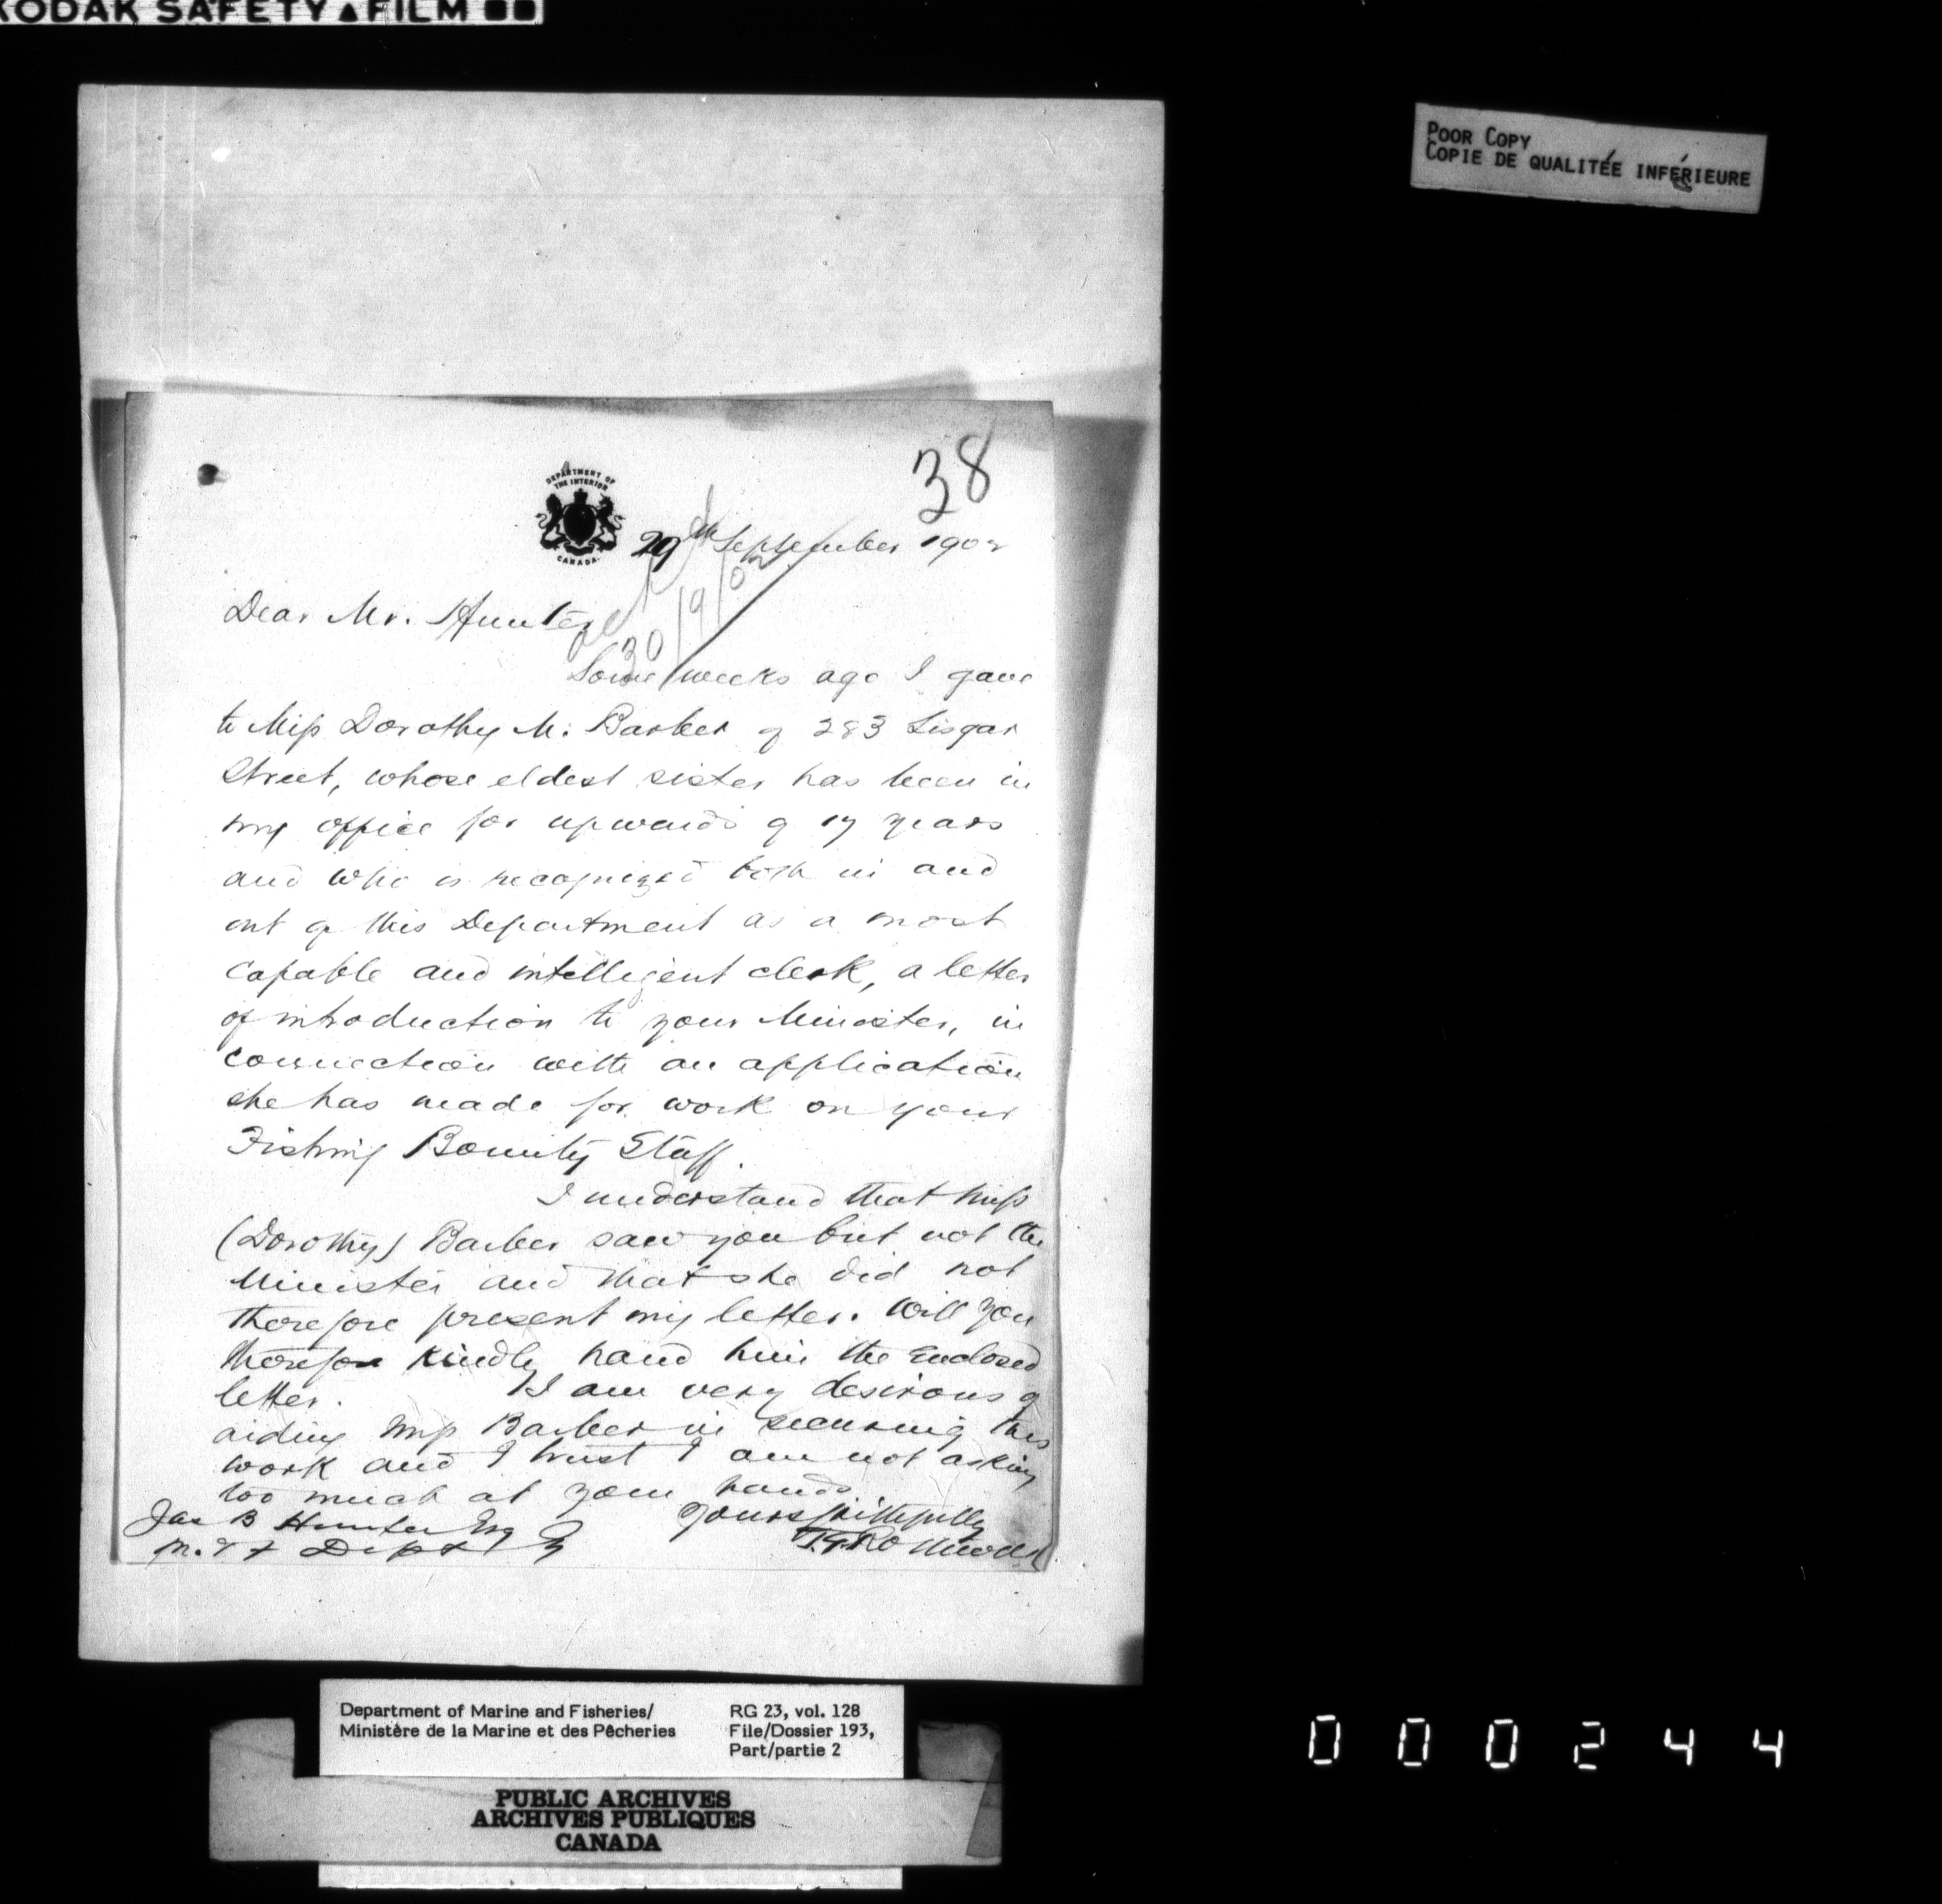 KODAK SAFETY ▲ FILM
POOR COPY
COPIE DE QUALITÉE INFÉRIEURE
38
DEPARTMENT OF
THE INTERIOR
CANADA.
29th September 1902
30/9/02
Dear Mr. Hunter
Some weeks ago I gave
to Miss Dorothy M. Barber of 283 Lisgar
Street, whose eldest sister has been in
my office for upwards of 17 years
and who is recognized both in and
out of this Department as a most
capable and intelligent clerk, a letter
of introduction to your Minister, in
connection with an application
she has made for work on your
Fishing Bounty Staff.
I understand that Miss
(Dorothy) Barber saw you but not the
Minister and that she did not
therefore present my letter. Will you
therefore kindly hand him the enclosed
letter. I am very desirous of
aiding Miss Barber in securing this
work and I trust I am not asking
too much at your hands
Yours faithfully
Jas B Hunter Esq
M. & F Dept
Department of Marine and Fisheries/
Ministère de la Marine et des Pêcheries
RG 23, vol. 128
File/Dossier 193,
Part/partie 2
PUBLIC ARCHIVES
ARCHIVES PUBLIQUES
CANADA
000244